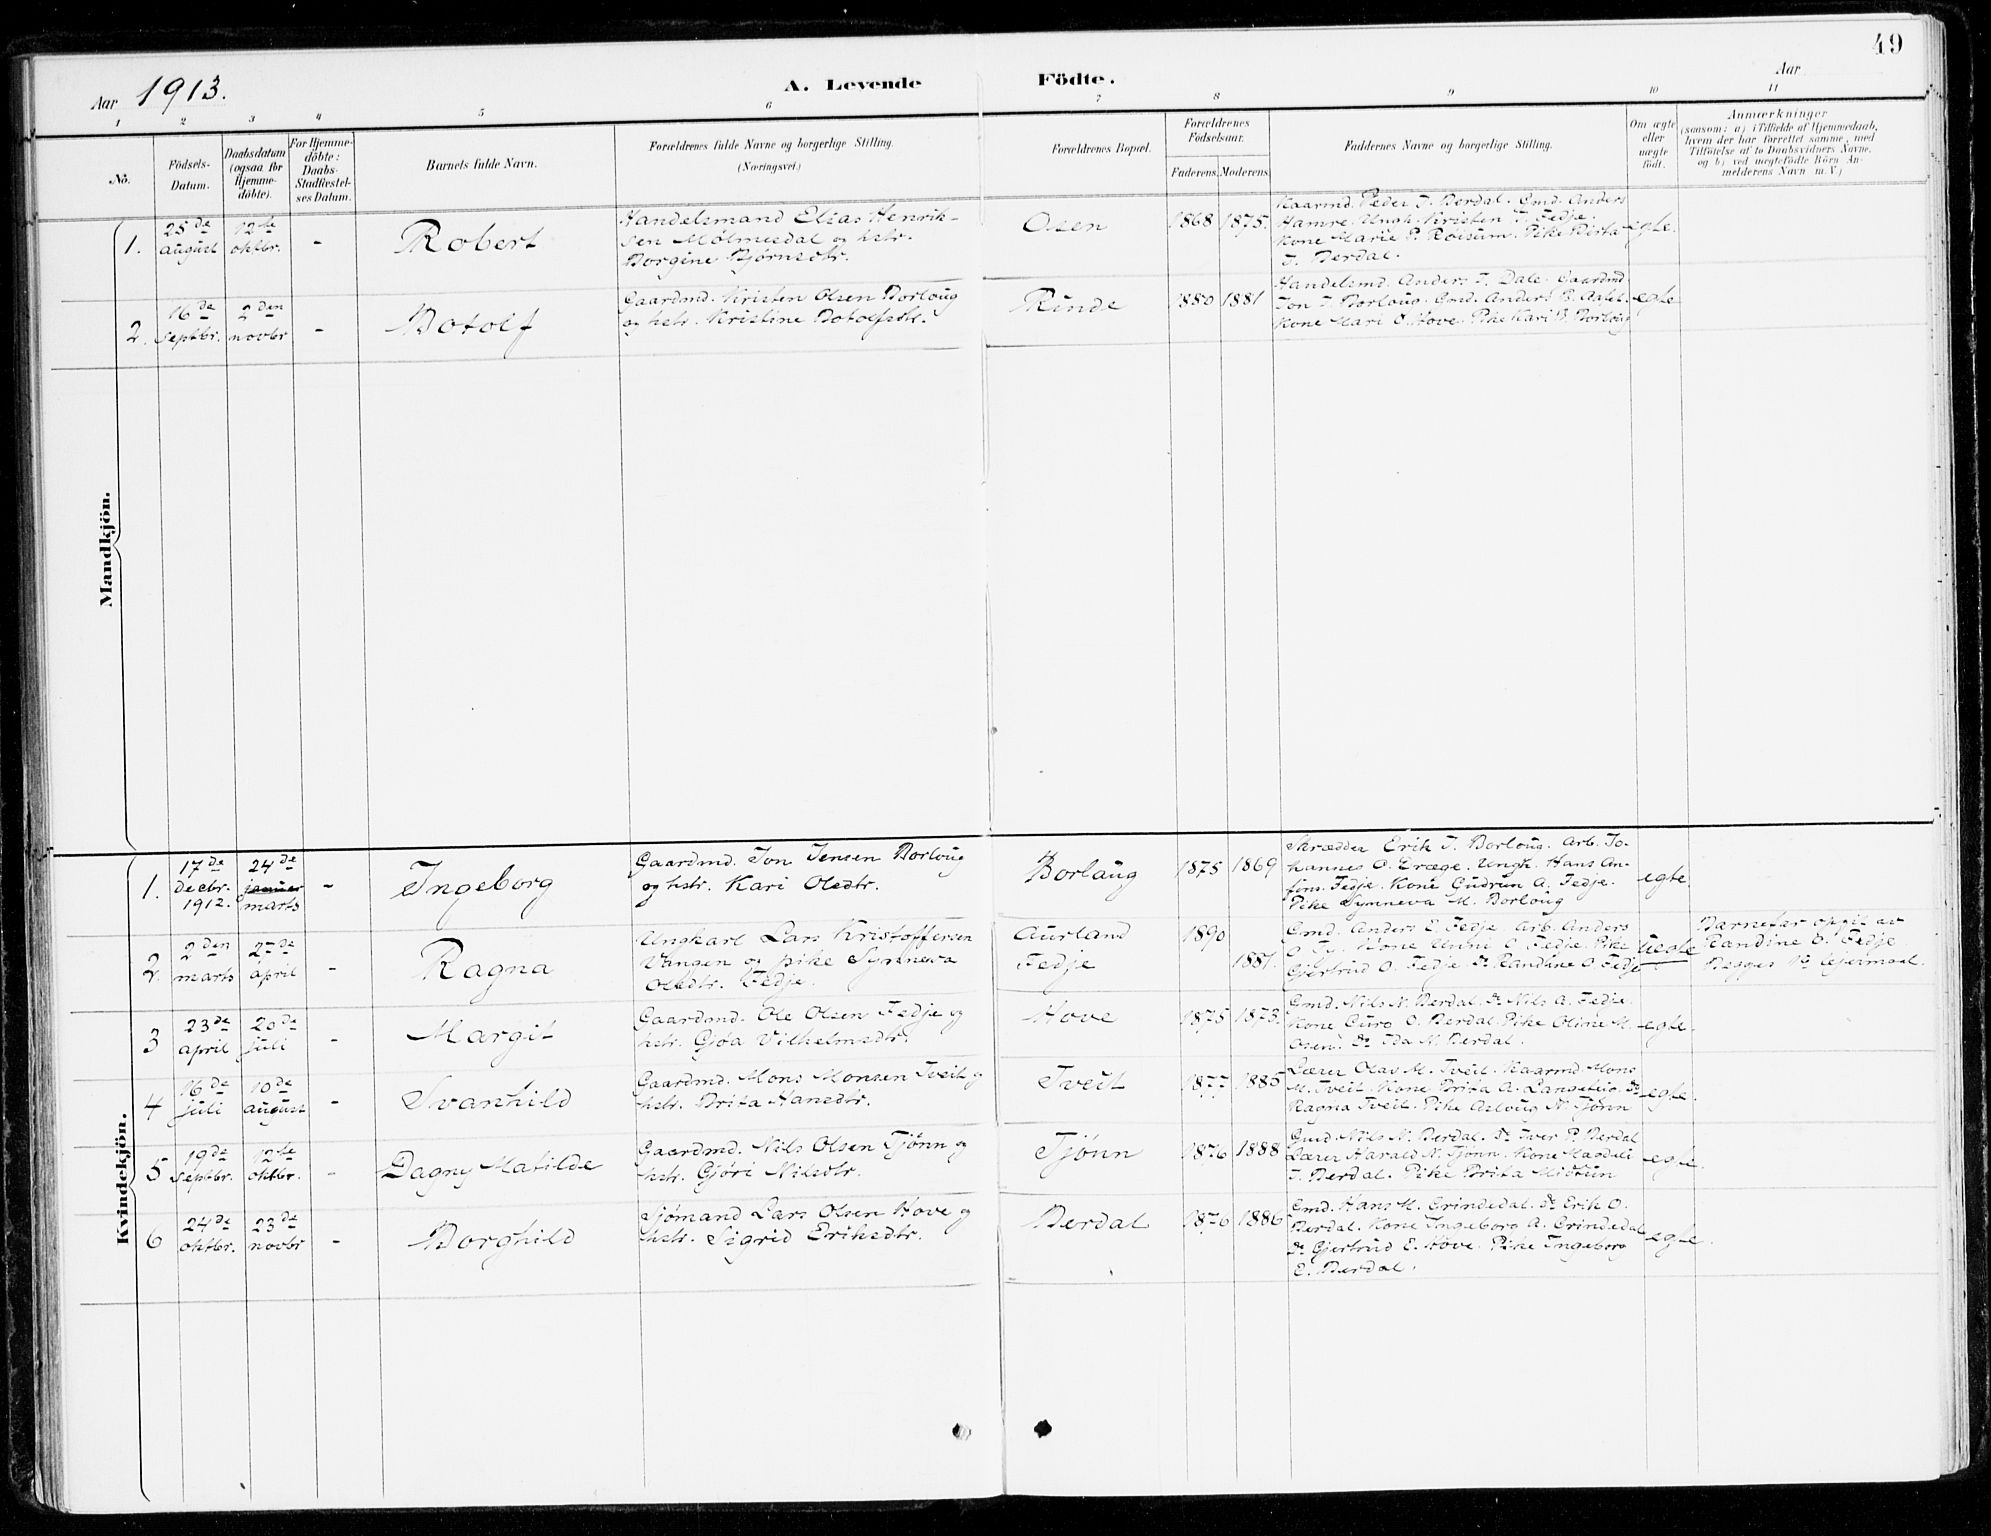 49
Aar 1913.
A. Levende Födte.
Aar
1 2 3 4 5 6 7 8 9 10 11
No.
Födsels-
Datum.
Daabsdatum
(ogsaa for
Hjemme-
döbte).
For Hjemme-
döbte:
Daabs-
Stadfæstel-
ses Datum.
Barnets fulde Navn.
Forældrenes fulde Navne og borgerlige Stilling.
(Næringsvei.)
Forældrenes Bopæl.
Forældrenes
Födselsaar.
Faderens. Moderens.
Faddernes Navne og borgerlige Stilling.
Om ægte
eller
uægte
født.
Anmærkninger
(saasom: a) i Tilfælde af Hjemmedaab,
hvem der har forrettet samme, med
Tilföielse af to Daabsvidners Navne,
og b) ved uægtefödte Börn An-
melderens Navn m. V.)
Mandkjön.
1.
25de
august
12te
oktbr.
-
Robert
Handelsmand Elias Henrik-
sen Mølmesdal og hstr.
Borgine Bjørnsdtr.
Osen
1868 1875.
Kaarmd. Peder J. Berdal. Gmd. Anders
Hamre. Ungk. Kristen J. Fedje.
Kone Marie P. Røisum. Pike Berta
J. Berdal.
egte.
2.
16de
septbr.
2den
novbr
-
Botolf
Gaardmd. Kristen Olsen Borloug
og hstr. Kristine Botolfsdtr.
Rinde
1880 1881
Handelsmd. Anders J. Dale. Gaardmd.
Jon J. Borloug. Gmd. Anders B.
Kone Mari O. Hove. Pike Kari B. Borloug
egte
Kvindekjön.
1.
17de
decbr.
1912.
24de
januar
marts
-
Ingeborg
Gaardmd. Jon Jensen Borloug
og hstr. Kari Olsdtr.
Borlaug
1875 1869
Skrædder Erik J. Borloug. Arb. Jo-
hannes O. Dræge. Ungk. Hans An-
fins. Fedje. Kone Gudrun A. Fedje.
Pike Synneva M. Borloug
egte.
2.
2den
marts
27de
april
-
Ragna
Ungkarl Lars Kristoffersen
Vangen og pike Synneva
Olsdtr. Fedje.
Aurland
Fedje
1890
1881.
Gmd. Anders E. Fedje. Arb. Anders
O. Kone Unni O. Fedje. Pike
Gjertrud O. Fedje. Do Randine O. Fedje
uegte
Barnefar opgit av
Randine O. Fedje
Begges 1ste lejermaal.
3
23de
april
20de
juli
-
Margit
Gaardmd. Ole Olsen Fedje og
hstr. Gjøa Vilhelmsdtr.
Hove
1875 1873.
Gmd. Nils N. Berdal. Do Nils A. Fedje.
Kone Guro O. Berdal. Pike Oline M.
Osen. Do Ida N. Berdal.
egte.
4
16de
juli
10de
august
-
Svanhild
Gaardmd. Mons Monsen Tveit og
hstr. Brita Hansdtr.
Tveit
1877 1885
Lærer Olav M. Tveit. Kaarmd. Mons
M. Tveit. Kone Brita A. Langeteig. Do
Ragna Tveit. Pike Asloug N. Tjønn
egte.
5
19de
septbr.
12te
oktbr.
-
Dagny Matilde
Gaardmd. Nils Olsen Tjønn og
hstr. Gjøri Nilsdtr.
Tjønn
1876 1888
Gmd. Nils N. Berdal. Do Iver P. Berdal
Lærer Harald N. Tjønn. Kone Magdeli
J. Berdal. Pike Brita Midtun
egte.
6
24de
oktbr.
23de
novbr
-
Borghild
Sjømand Lars Olsen Hove og
hstr. Sigrid Eriksdtr.
Berdal
1876 1886
Gmd. Hans M. Grindedal. Do Erik O.
Berdal. Kone Ingeborg A. Grindedal
Do Gjertrud E. Hove. Pike Ingeborg
E. Berdal.
egte.